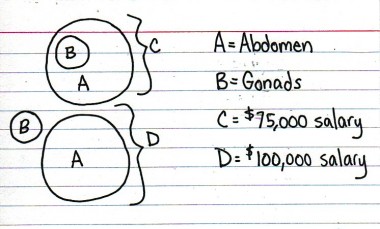 B
C
A
B
A
D
A=Abdomen
B=Gonads
C=$75,000 salary
D=$100,000 salary